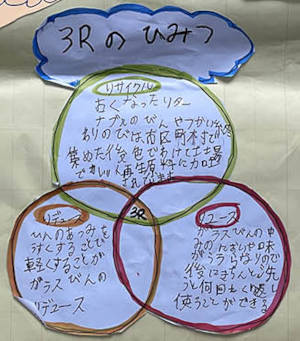 3Rのひみつ
リサイクル
おくなったリター
ナブルのびんやつかい
ありのびは市区町村などが
集めた後色でわけて工場
でカレット再生原料に加工
されびんになる
3R
リデュース
びんのあつみを
うすくすることで
軽くすることが
ガラスびんの
リデュース
リユース
ガラスびんの中
みのにおいや味
がうつらないので
後にきちんと洗
うと何回もくり返し
使うことができる